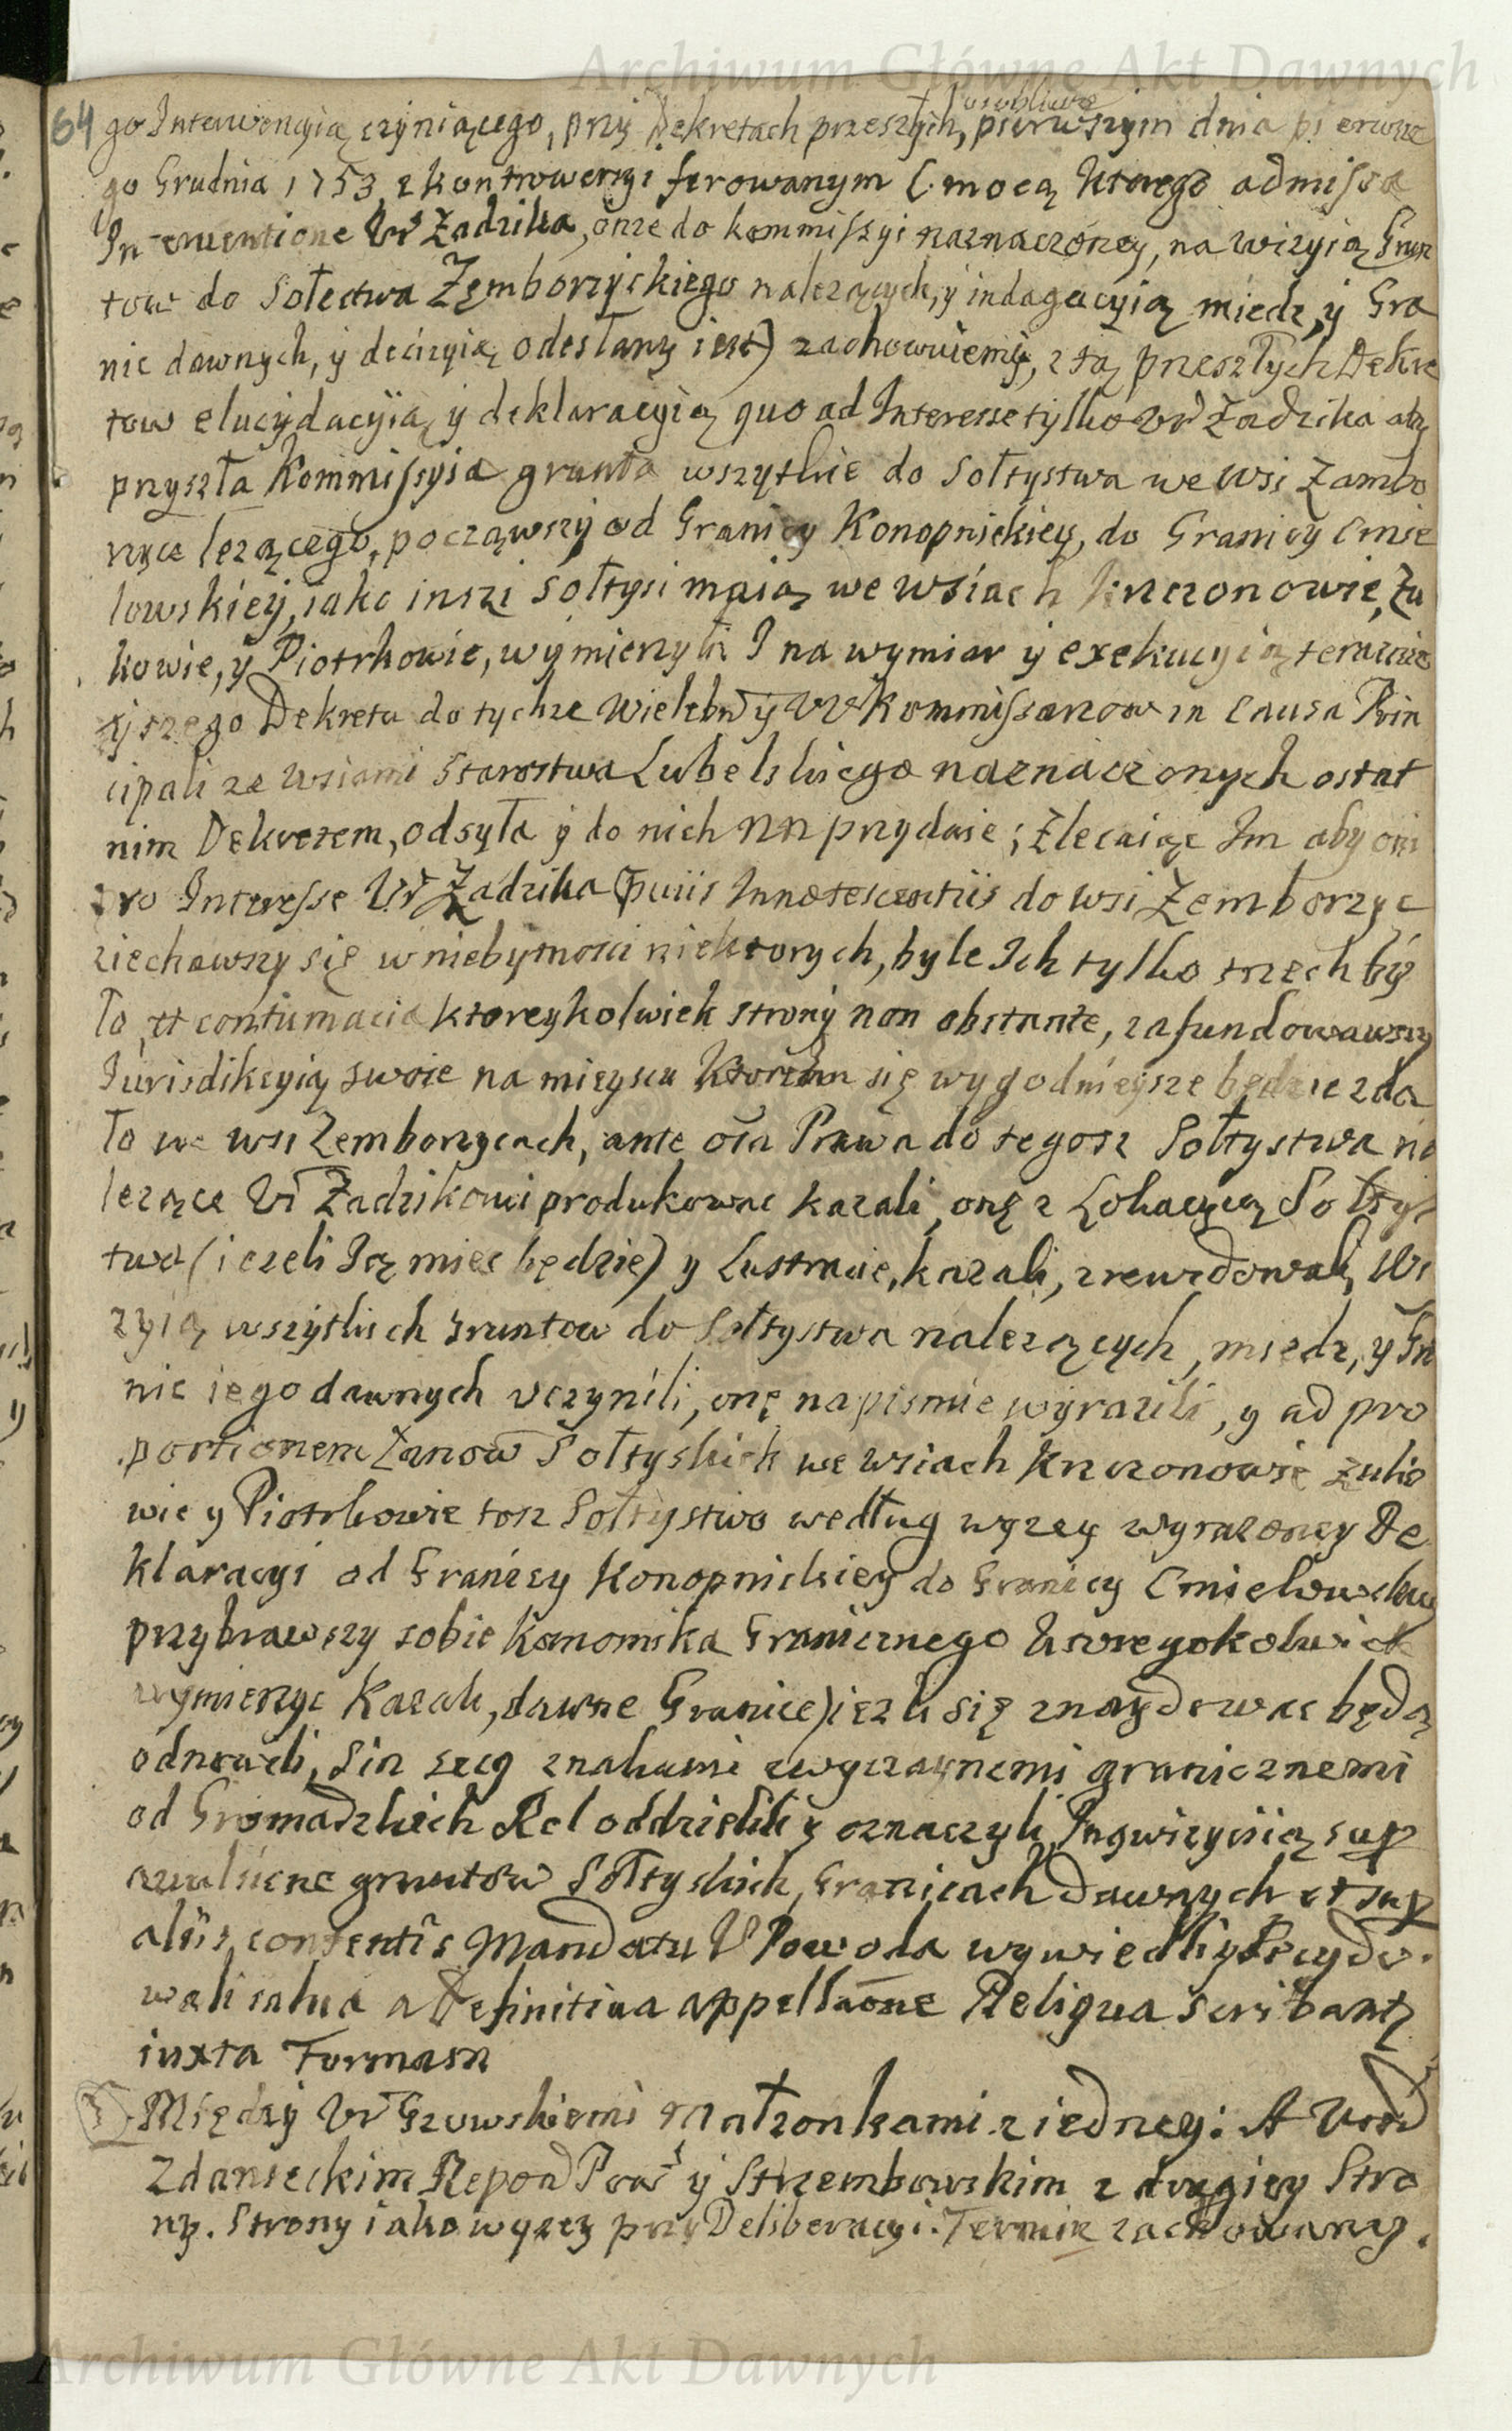 Archiwum Główne Akt Dawnych
osobliwie
64 go Interwencyią czyniącego, przy Dekretach przeszłych, pierwszym dnia pierwsze
go Grudnia 1753 z kontrowersyi ferowanym (mocą ktorego admissa
Interuentione Ur Żadzika, onze do kommissyi naznaczoney, na wizyią Grun
tow do Sołectwa Zęmborzyckiego nalezących, y indagacyią miedz, y Gra
nic dawnych, y decizyią odesłany iest) zachowuiemy, z tą przeszłych Dekre
tow elucydacyią y deklaracyią quo ad Interesse tylko Ur Żadzika aby
przyszła Kommissyia grunta wszytkie do Sołtystwa we wsi Zambo
rzyce lezącego, począwszy od Granicy Konopnickiey, do Granicy Cmie
lowskiey, iako inszi Sołtysi maią we wsiach Krzczonowie, Żu
kowie, y Piotrkowie, wymierzyła I na wymiar y exekucyią teraznie
yszego Dekretu do tychze Wielebny UU Kommissarzow in Causa Prin
cipali ze wsiami Starostwa Lubelskiego naznaczonych ostat
nim Dekretem, odsyła y do nich NN przydaie; Zlecaiąc Im aby oni
pro Interesse Ur Żadzika Innotescentiis do wsi Zemborzyc
ziechawszy się w niebytnosci niektorych, byle Ich tylko trzech by
ło, et contumacia ktoreykolwiek strony non obstante, zafundowawszy
Iurisdikcyią swoie na mieyscu Ktorehm się wygodnieysze będzie zda
ło we wsi Zemborzycach, ante oia Prawa do tegosz Sołtystwa na
lezące Ur Żadzikowi produkowac kazali, onę z Lokacyią Sołtys
twa (iezeli Ią miec będzie) y Lustracie, kazali, zrewidowali, Wi
zyią wszytkich Gruntow do Sołtystwa nalezących, miedz, y Gra
nic iego dawnych uczynili, onę na pismie wyrazili, y ad pro
portionem Łanow Sołtyskich we wsiach Krzczonowie Żuko
wie y Piotrkowie tosz Sołtystwo według wyzey wyrazoney De
klaracyi od Granicy Konopnickiey do Granicy Cmielowskiey
przybrawszy sobie Komornika Granicznego ktoregokolwiek
wymierzyc Kazali, dawne Granice) iezli się znaydowac będą
odnowili, Sin secq znakami zwyczaynemi granicznemi
od Gromadzkich Rol oddzielili y oznaczyli, Inqwizycyią sup
avulsione gruntow Sołtyskich, Granicach dawnych et sup
aliis contentis Mandatu U Powoda wywiedli y decydo
wali salua a Definitiua appellaone Reliqua scribantz
iuxta Formam
3 Między Ur Gzowskiemi Małzonkami z iedney: A Urod
Zdanieckim Repond y Strzembowskim z drugiey Stro
ny. Strony iako wyzey przy Deliberacyi. Termin zachowany.
Archiwum Główne Akt Dawnych